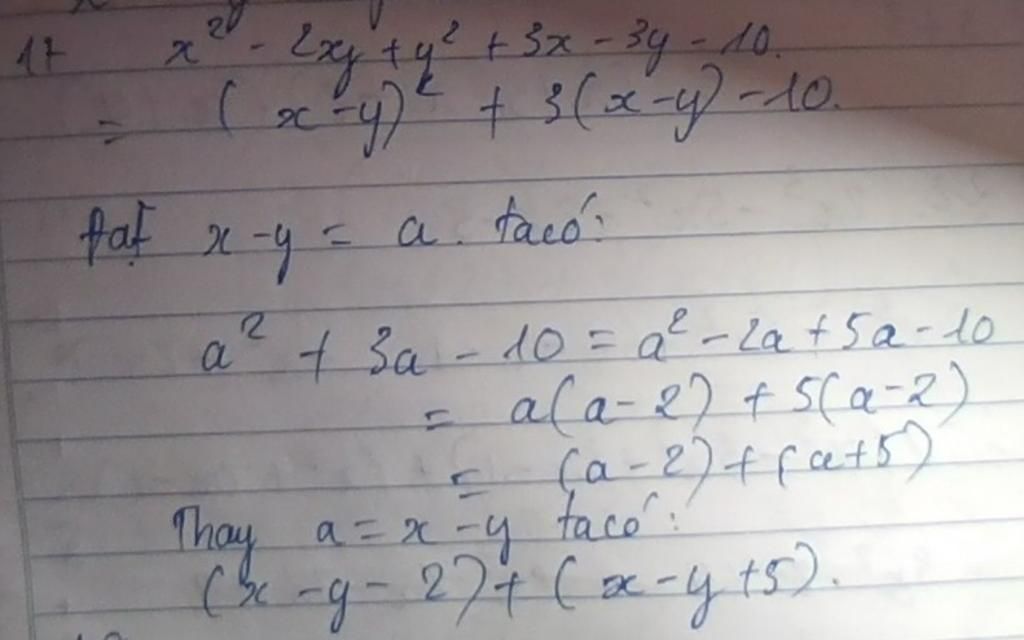 17 x² - 2xy + y² + 3x - 3y - 10.
= (x-y)² + 3(x-y) - 10.
Đặt x - y = a. ta có:
a² + 3a - 10 = a² - 2a + 5a - 10
= a(a-2) + 5(a-2)
= (a-2) + (a+5)
Thay a = x - y ta có:
(x - y - 2) + (x - y + 5).